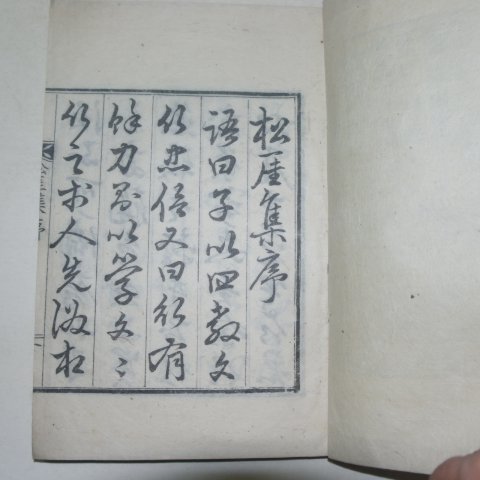 松厓集序
語曰子以四教文
行忠信又曰行有
餘力則以學文文〻
行之於人先後本